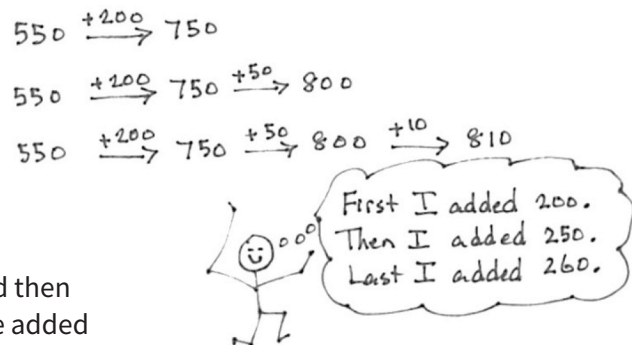 550 +200 → 750
550 +200 → 750 +50 → 800
550 +200 → 750 +50 → 800 +10 → 810
First I added 200.
Then I added 250.
Last I added 260.
d then
e added